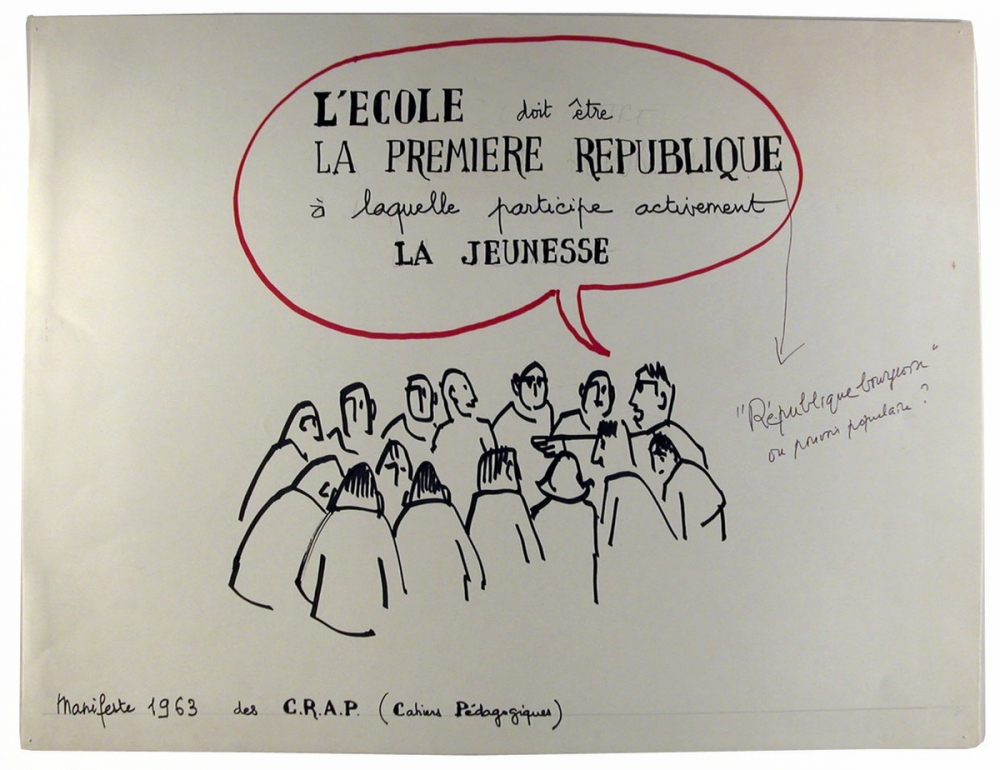 L'ECOLE doit être
LA PREMIERE REPUBLIQUE
à laquelle participe activement
LA JEUNESSE
"République bourgeoise"
ou pouvoir populaire ?
Manifeste 1963 des C.R.A.P. (Cahiers Pédagogiques)